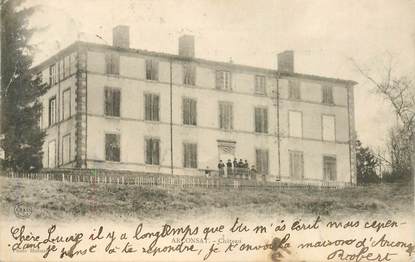 ARCONSAT. - Château
Chère Louise il y a longtemps que tu m'as écrit mais cepen-
dant je pense à te répondre, je t'envoie la maison d'Arcons
Robert